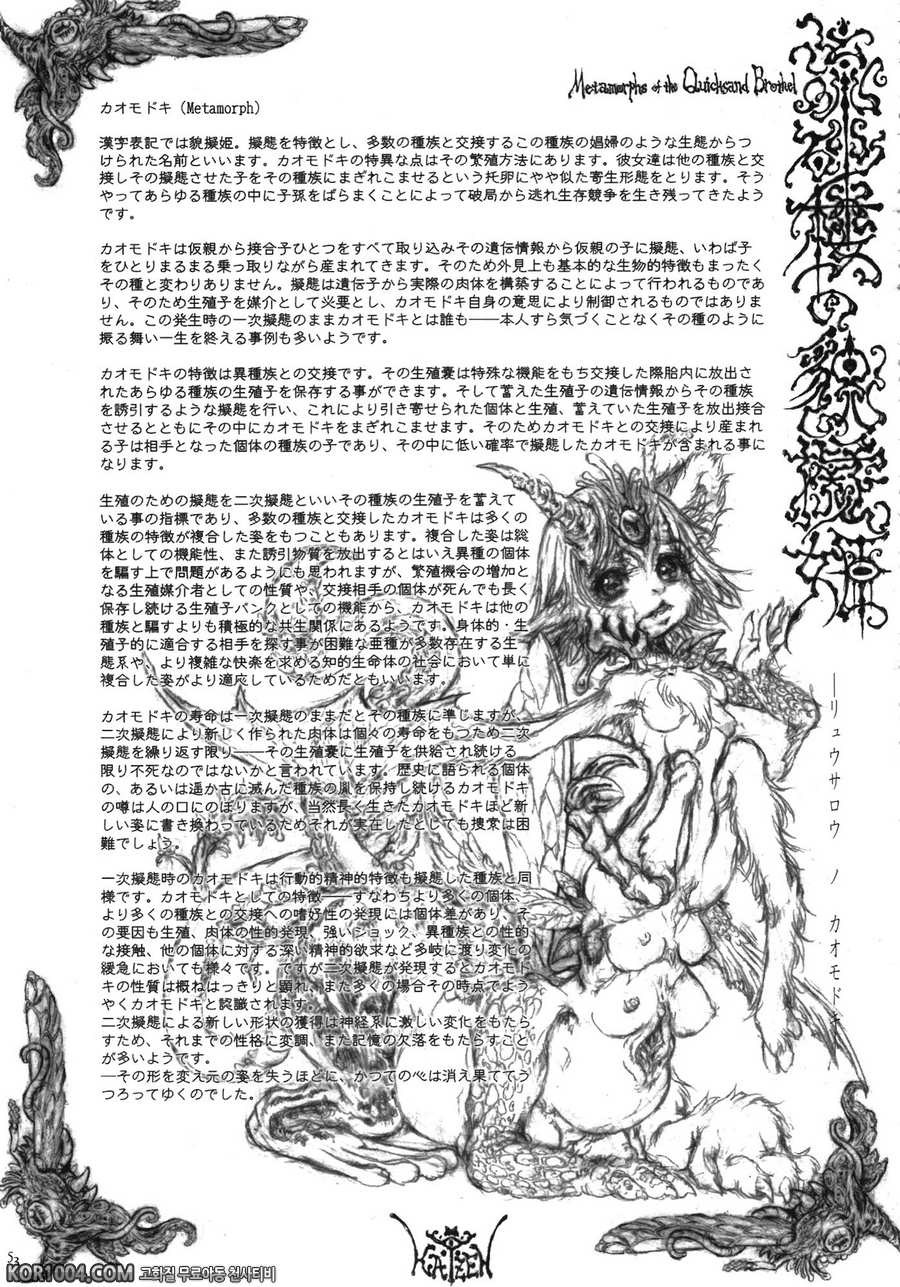 Metamorphs of the Quicksand Brothel
カオモドキ (Metamorph)
漢字表記では貌擬姫。擬態を特徴とし、多数の種族と交接するこの種族の娼婦のような生態からつ
けられた名前といいます。カオモドキの特異な点はその繁殖方法にあります。彼女達は他の種族と交
接しその擬態させた子をその種族にまぎれこませるという托卵にやや似た寄生形態をとります。そう
やってあらゆる種族の中に子孫をばらまくことによって破局から逃れ生存競争を生き残ってきたよう
です。
カオモドキは仮親から接合子ひとつをすべて取り込みその遺伝情報から仮親の子に擬態、いわば子
をひとりまるまる乗っ取りながら産まれてきます。そのため外見上も基本的な生物的特徴もまったく
その種と変わりありません。擬態は遺伝子から実際の肉体を構築することによって行われるものであ
り、そのため生殖子を媒介として必要とし、カオモドキ自身の意思により制御されるものではありま
せん。この発生時の一次擬態のままカオモドキとは誰も――本人すら気づくことなくその種のように
振る舞い一生を終える事例も多いようです。
カオモドキの特徴は異種族との交接です。その生殖嚢は特殊な機能をもち交接した際胎内に放出さ
れたあらゆる種族の生殖子を保存する事ができます。そして蓄えた生殖子の遺伝情報からその種族
を誘引するような擬態を行い、これにより引き寄せられた個体と生殖、蓄えていた生殖子を放出接合
させるとともにその中にカオモドキをまぎれこませます。そのためカオモドキとの交接により産まれ
る子は相手となった個体の種族の子であり、その中に低い確率で擬態したカオモドキが含まれる事に
なります。
生殖のための擬態を二次擬態といいその種族の生殖子を蓄えて
いる事の指標であり、多数の種族と交接したカオモドキは多くの
種族の特徴が複合した姿をもつこともあります。複合した姿は総
体としての機能性、また誘引物質を放出するとはいえ異種の個体
を騙す上で問題があるようにも思われますが、繁殖機会の増加と
なる生殖媒介者としての性質や、交接相手の個体が死んでも長く
保存し続ける生殖子バンクとしての機能から、カオモドキは他の
種族と騙すよりも積極的な共生関係にあるようです。身体的・生
殖子的に適合する相手を探す事が困難な亜種が多数存在する生
態系や、より複雑な快楽を求める知的生命体の社会において単に
複合した姿がより適応しているためだともいいます。
カオモドキの寿命は一次擬態のままだとその種族に準じますが、
二次擬態により新しく作られた肉体は個々の寿命をもつため二次
擬態を繰り返す限り――その生殖嚢に生殖子を供給され続ける
限り不死なのではないかと言われています。歴史に語られる個体
の、あるいは遥か古に滅んだ種族の胤を保持し続けるカオモドキ
の噂は人の口にのぼりますが、当然長く生きたカオモドキほど新
しい姿に書き換わっているためそれが実在したとしても捜索は困
難でしょう。
一次擬態時のカオモドキは行動的精神的特徴も擬態した種族と同
様です。カオモドキとしての特徴――すなわちより多くの個体、
より多くの種族との交接への嗜好性の発現には個体差があり、そ
の要因も生殖、肉体の性的発現、強いショック、異種族との性的
な接触、他の個体に対する深い精神的欲求など多岐に渡り変化の
緩急においても様々です。ですが二次擬態が発現するとカオモド
キの性質は概ねはっきりと顕れ、また多くの場合その時点でよう
やくカオモドキと認識されます。
二次擬態による新しい形状の獲得は神経系に激しい変化をもたら
すため、それまでの性格に変調、また記憶の欠落をもたらすこと
が多いようです。
―その形を変え元の姿を失うほどに、かつての心は消え果ててう
つろってゆくのでした。
―リュウサロウ ノ カオモドキ
53
KOR1004.COM 고화질 무료야동 천사티비